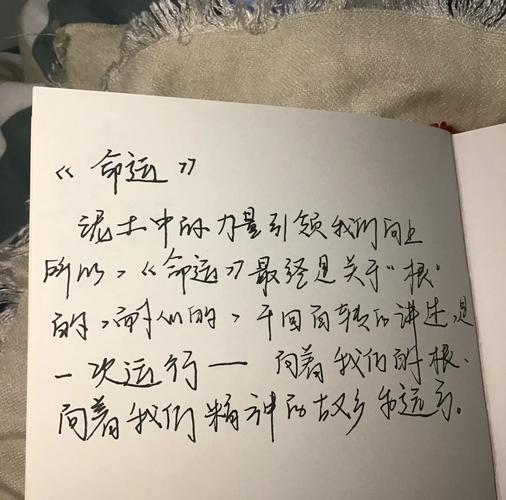 《命运》
泥土中的力量引领我们向上
所以,《命运》最终是关于“根”
的,而个人的,千回百转的讲述,是
一次运行——向着我们的根、
向着我们精神的故乡和远方。